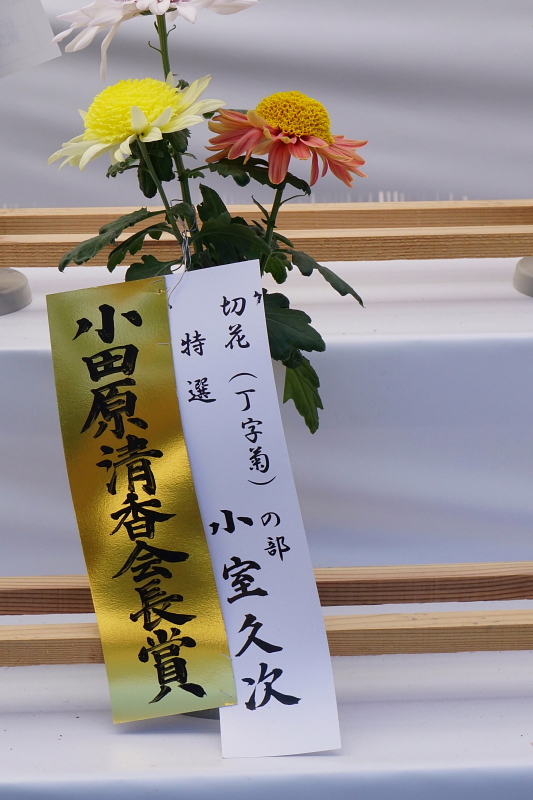 切花（丁字菊）の部
特選
小室久次
小田原清香会長賞